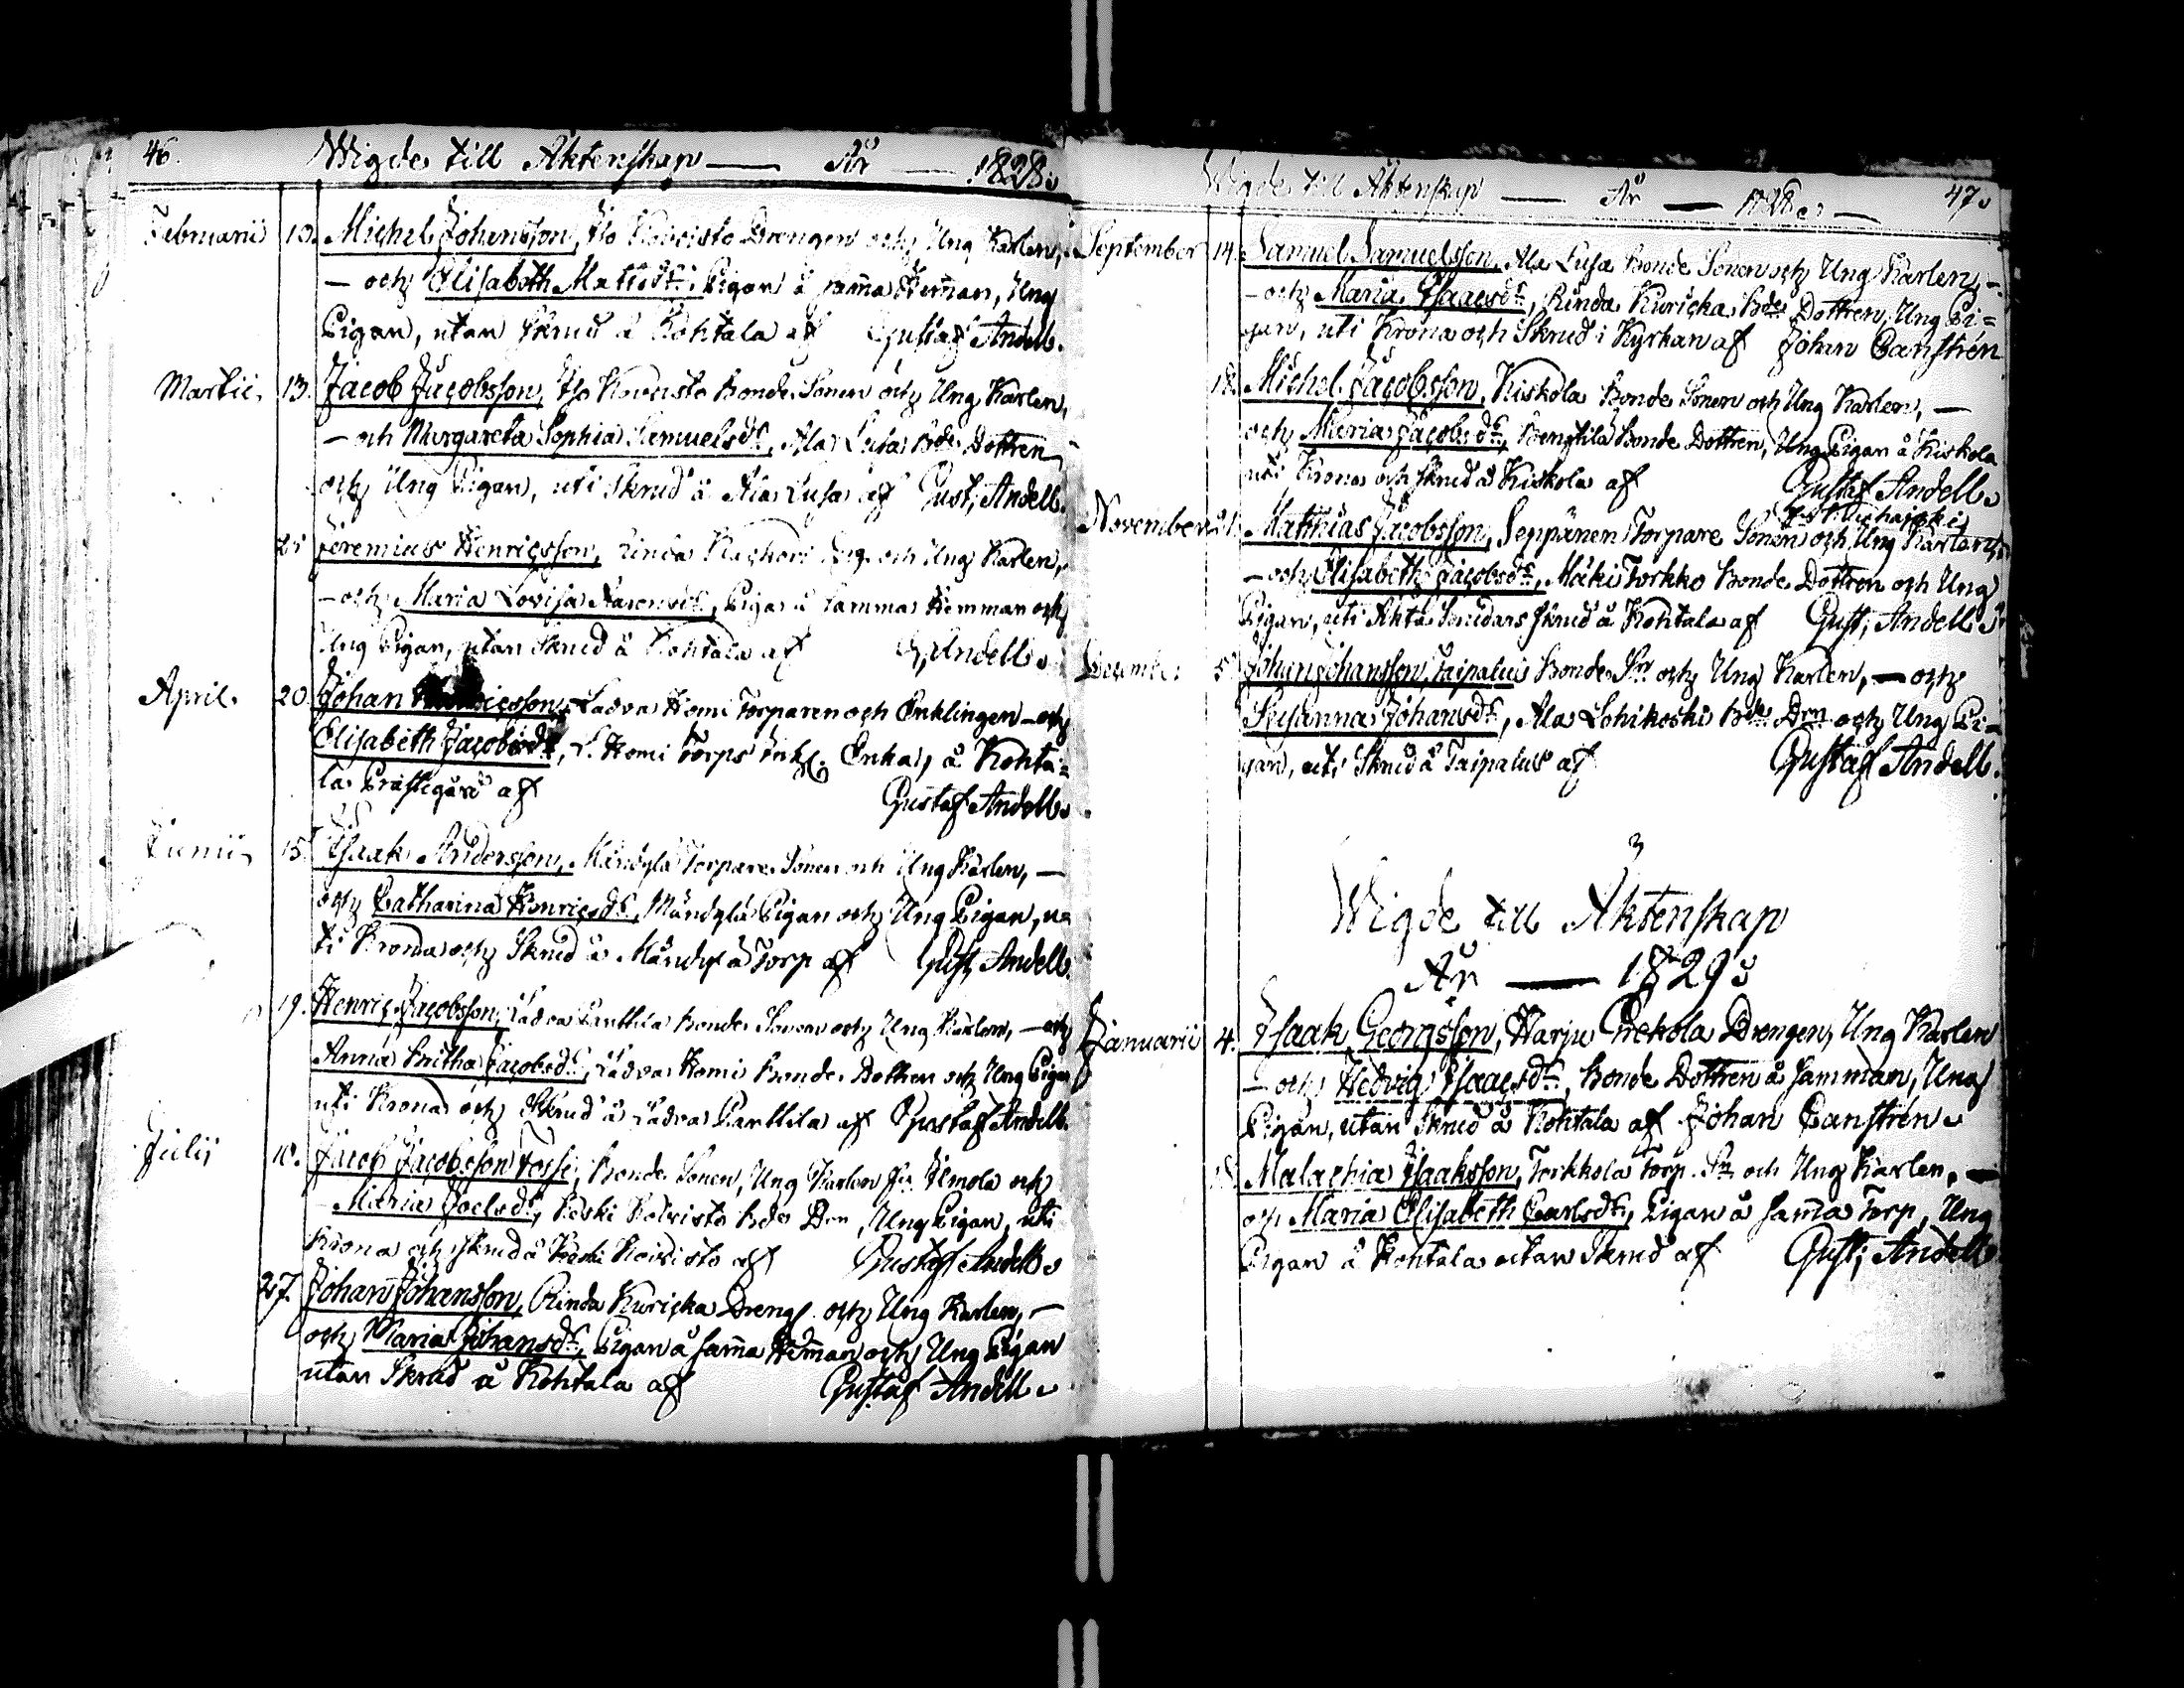 46. Wigde till Äktenskap — År — 1828.
Februarii 10. Michel Johansson, Iso Koivisto Drengen och Ung Karlen,
— och Elisabeth Matsdr. Pigan å samma Hemman, Ung
Pigan, utan Skrud å Kohtala af Gustaf Andell.
Martii. 13. Jacob Jacobsson, Iso Koivisto Bonde Sonen och Ung Karlen,
— och Margareta Sophia Samuelsdr. Ala Lusa Bde Dottren
och Ung Pigan, uti Skrud å Ala Lusa af Gust; Andell.
Jeremias Henricsson, Rinda och Ung Karlen,
— och Maria Lovisa Aaronsdr. Piga å samma Hemman och
Ung Pigan, utan Skrud å Kohtala af G, Andell.
April. 20. Johan Ladva Homi Torparen och Enklingen — och
Elisabeth Jacobsdr, L. Homi Torps Enka, å Kohta-
la Prästgård af Gustaf Andell.
Junii 15. Isaak Andersson, Mändylä Torpare Sonen och Ung Karlen, —
och Catharina Henricsdr, Mändylä Pigan och Ung Pigan, u-
ti Krona och Skrud å Mändylä Torp af Gust; Andell.
19. Henric Jacobsson, Ladva Panttila Bonde Sonen och Ung Karlen, — och
Anna Britha Jacobsdr, Ladva Homi Bonde Dottren och Ung Pigan
uti Krona och Skrud å Ladva Panttila af Gustaf Andell.
Julii 10. Jacob Jacobsson Bonde Sonen, Ung Karlen fr. Ilmola och
Maria Joelsdr, Koski Koivisto Bde Don, Ung Pigan, uti
Krona och Skrud å Koski Koivisto af Gustaf Andell.
27. Johan Johansson, Rinda Kuricka Dreng och Ung Karlen, —
och Maria Johansdr. Pigan å samma Hemman och Ung Pigan
utan Skrud å Kohtala af Gustaf Andell.
Wigde till Äktenskap — År — 1828. — 47.
September 14. Samuel Samuelsson, Ala Lusa Bonde Sonen och Ung Karlen, —
— och Maria Isaacsdr, Rinda Kuricka Bde Dottren, Ung Pi-
gan, uti Krona och Skrud i Kyrkan af Johan Canstrén
18. Michel Jacobsson, Kiskola Bonde Sonen och Ung Karlen, —
och Maria Jacobsdr, Bengtilä Bonde Dottren, Ung Pigan å Kiskola
uti Krona och Skrud å Kiskola af Gustaf Andell.
November 21. Matthias Jacobsson, Seppänen Torpare Sonen och Ung Karlen,
— och Elisabeth Jacobsdr, Mäki Torkko Bonde Dottren och Ung
Pigan, uti Äkta Skrud å Kohtala af Gust; Andell.
December 5. Johan Johansson, Taipalus Bonde Sn och Ung Karlen, — och
Susanna Johansdr, Ala Lohikoski Bde Don och Ung Pi-
gan, uti Skrud å Taipalus af Gustaf Andell.
Wigde till Äktenskap
År — 1829.
Januarii 4. Isaak Georgsson, Harju Drengen, Ung Karlen
— och Hedvig Isaacsdr, Bonde Dottren å samman, Ung
Pigan, utan Skrud å Kohtala af Johan Canstrén
18. Malachia Isaaksson, Torkkola Torp. Sn och Ung Karlen. —
och Maria Elisabeth Carlsdr, Pigan å samma Torp, Ung
Pigan å Kohtala utan Skrud af Gust; Andell